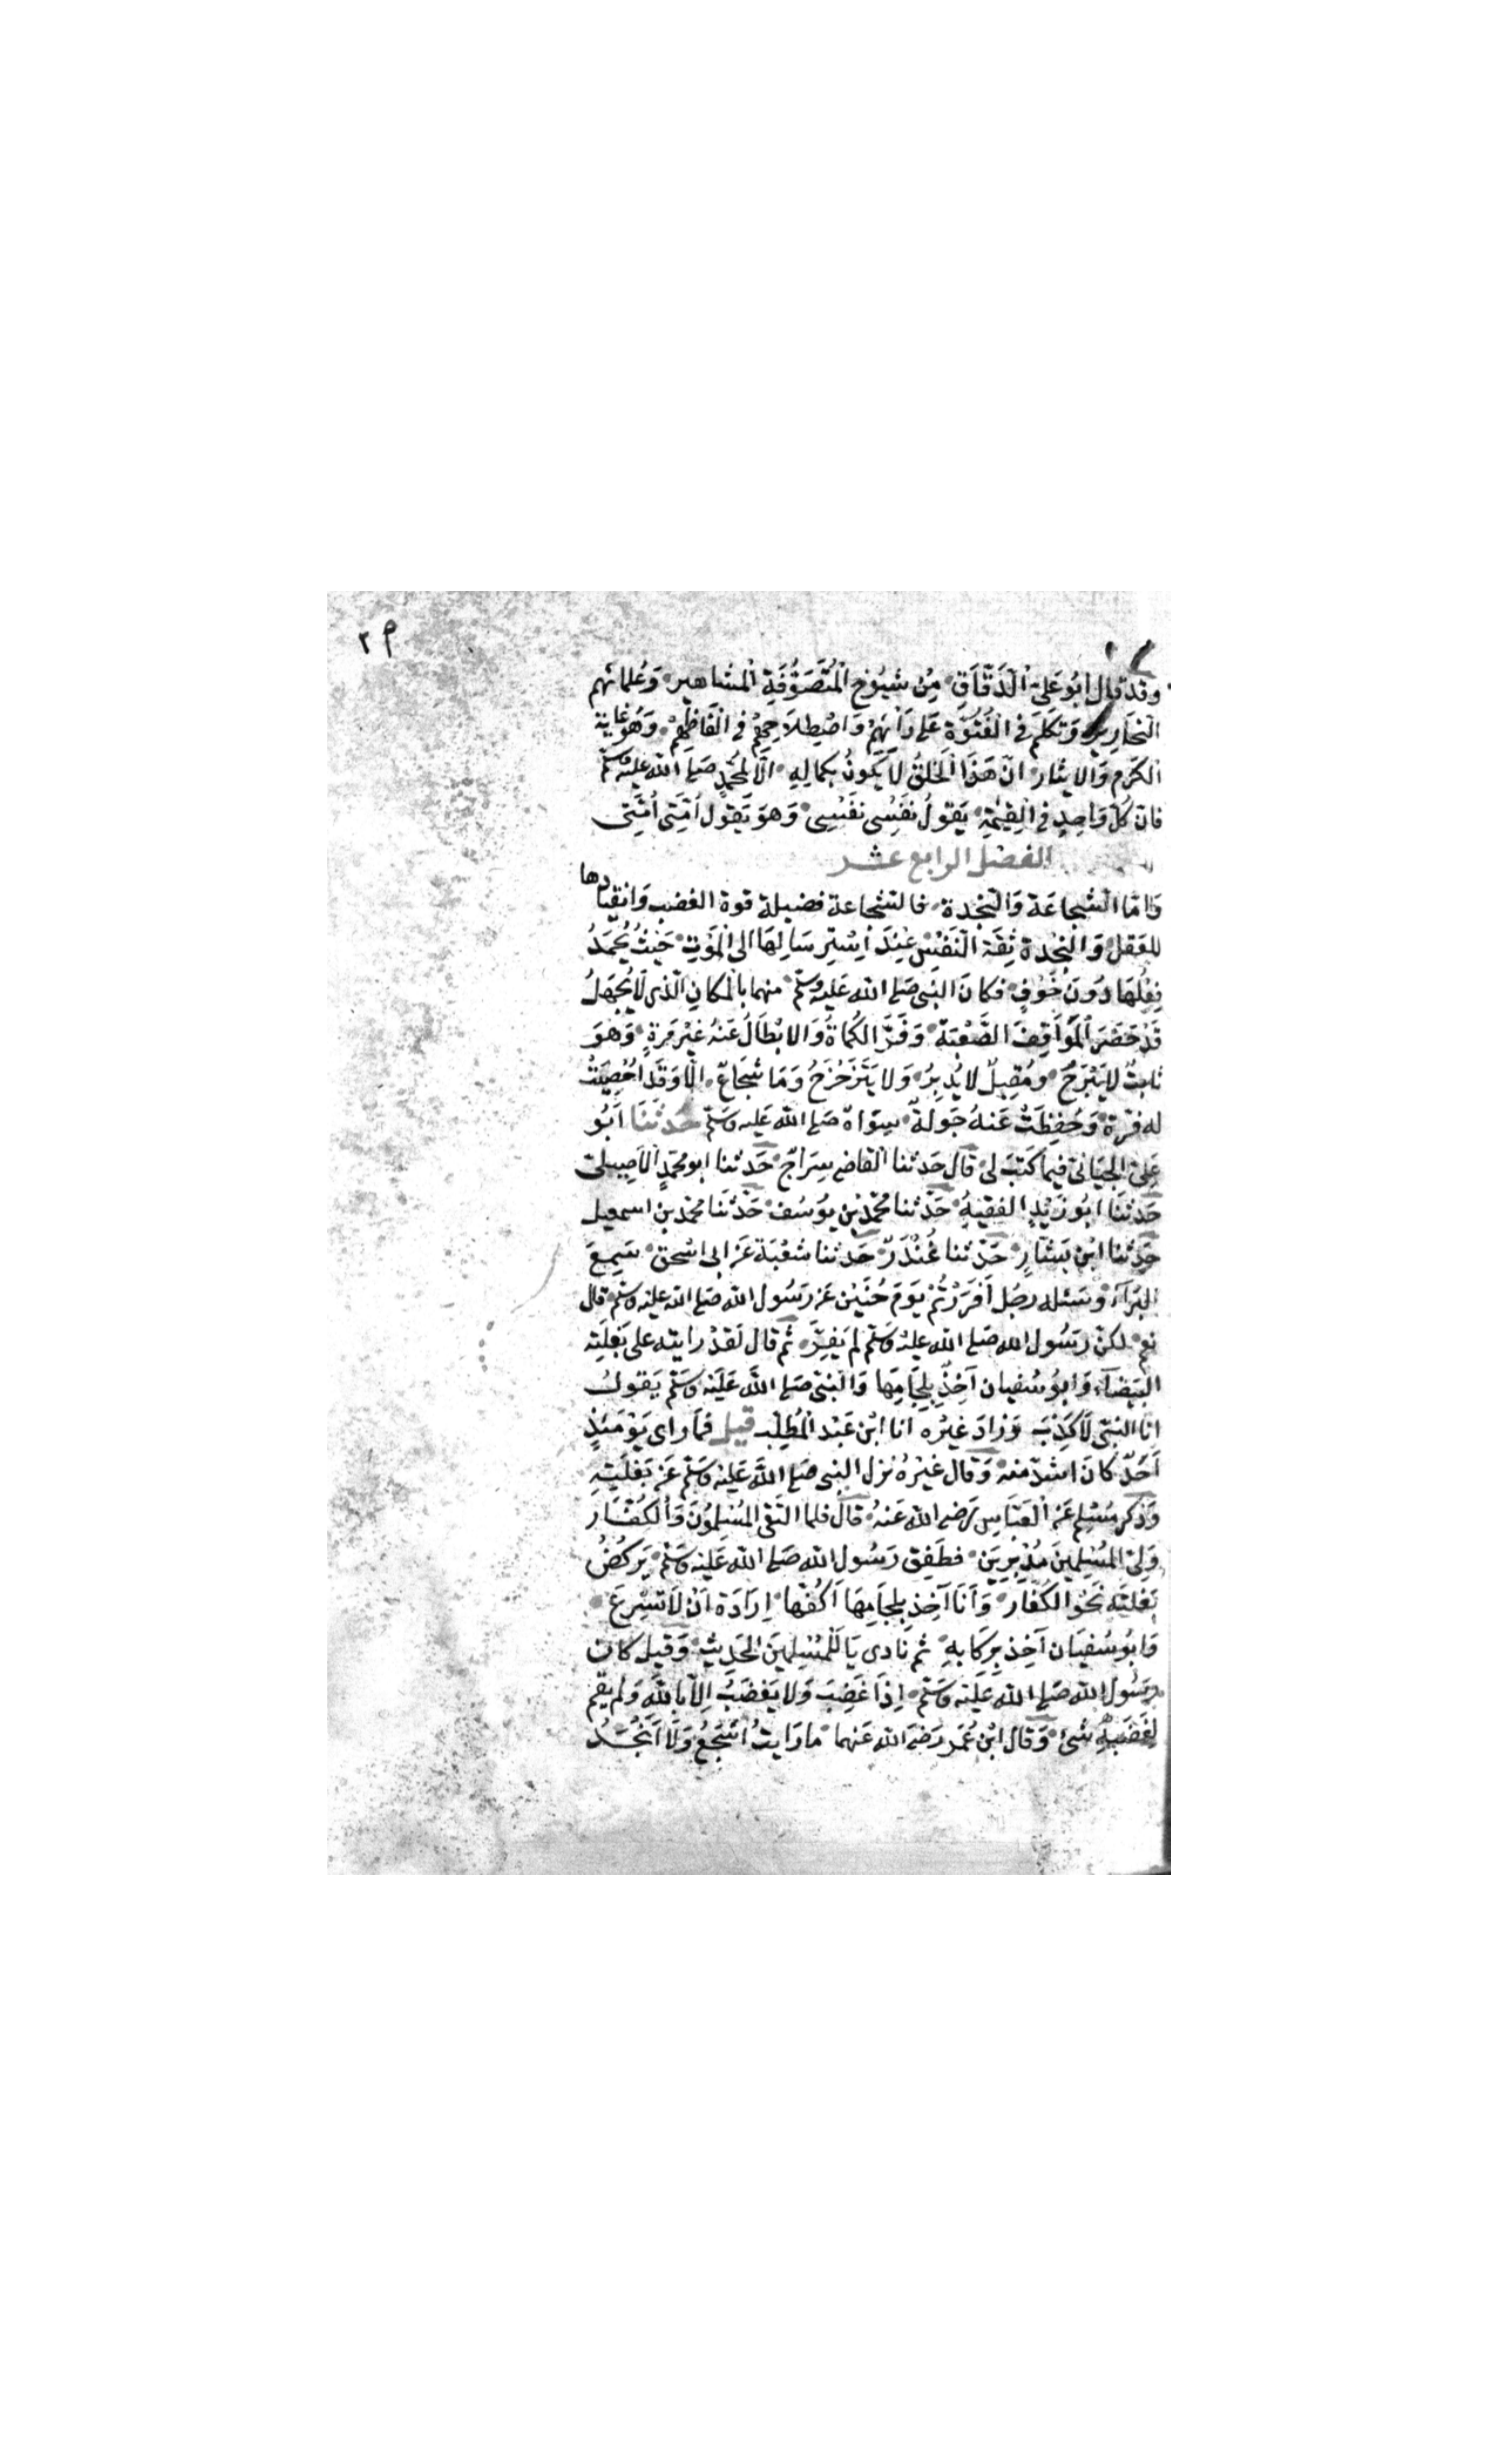 ٢٩
وقد قال أبُو عَلِيّ الدَّقّاقِ مِنْ شيُوخ المُتَصَوِّفَةِ المشاهير وَعُلمائهم
النحَارير وَتكلم في الفُتُوّة عَلى رَأيهِمْ وَاصْطِلاَحِهِمْ في الْفَاظِهِمْ وَهُوَ غاية
الكرَم وَالايثار انّ هَذَا الخلقُ لاَ يَكُونُ بكمالِهِ الّا لمُحَمّدٍ صَلى الله عليه وسلم
فان كُلّ وَاحِدٍ في القِيٰمَةِ يَقولُ نفسِى نفسِى وَهوَ يَقول اُمّتِى اُمّتِى
الفصْل الرابع عشر
وَامّا الشجاعَة وَالنجْدة فالشجاعة فضيلة قوة الغضب وَانقيادها
للعَقل وَالنجْدة ثِقَة النَفْسْ عِندَ اسْتِرسَالِهَا الى المَوْت حَيْثُ يُحْمَدُ
فِعْلُهَا دُونَ خَوْفٍ فكانَ النبى صَلى الله عَليه وسلم منهما بالمكانِ الّذى لَا يُجْهَلُ
قَدْ حَضَرَ المَوَاقِفَ الصَّعْبَة وَفَرَّ الكُمَاةُ وَالابْطَالُ عَنهُ غَيْرَ مَرةٍ وَهُوَ
ثابتٌ لا يَبْرَحُ ومُقبِلٌ لا يُدبِرُ وَلا يَتَزَحْزَحُ وَمَا شُجَاعٌ الّا وَقَد اُحْصِيَتْ
له فرّة وَحُفِظَتْ عَنهُ جَولةٌ سِوَاهُ صَلى الله عَليه وسَلم حَدثنَا أبُو
عَلِىّ الجَيّانىّ فيما كَتَبَ لى قال حَدثنا القاضى سِرَاجٌ حَدثنا ابو محمّدٍ الأصِيلىّ
حَدثنَا ابُو زَيْدٍ الفقِيهُ حَدّثنا محمّد بن يوُسُف حَدّثنَا محمّد بن اسمعيل
حَدثنا ابْن بَشّارٍ حَدّثنا غُنْدَرٌ حَدثنا شعْبَة عَن ابى اسْحق سَمِعَ
البَرَآء وسَئله رجُل أفَرَرْتُمْ يَومَ حُنَيْن عَن رَسُول الله صَلى الله عليه وسلم قال
نعم لكنّ رَسُول الله صَلى الله عليه وسَلم لم يَفِرَّ ثُم قال لَقدْ رايته على بَغلَتِه
البَيْضَآءِ وَابُو سُفيان آخِذٌ بِلِجَامِهَا وَالنبى صَلى الله عَليْه وَسَلم يَقولُ
انا النبى لَا كَذِبْ وَزادَ غيْره انا ابْن عَبْد المُطلِب قيل فمَا راى يَوْمَئِذٍ
أحَدٌ كانَ اشدّ منه وَقال غَيْرُهُ نزل النبى صَلى الله عَليْه وَسَلم عَن بَغلَتِهِ
وَذكر مُسْلِم عَن العَبّاسِ رَضى الله عَنهُ قال فلما التَقى المُسْلِمُونَ وَالكُفّار
وَلىّ المُسْلِمينَ مُدْبِرِينَ فطَفِقَ رَسُول الله صَلى الله عَليْه وَسَلم يَركُضُ
بَغلتَه نَحْوَ الكُفّار وَأنَا آخِذ بِلِجَامِهَا أكُفّهَا اِرَادَة أنْ لَا تُسْرِعَ
وَابوُ سُفيَان آخِذ بِركَابِهِ ثم نادى يَا لَلْمُسْلِمِينَ الحَدِيثَ وَقيل كان
رَسُول الله صَلى الله عَليْه وَسَلم اِذَا غَضِبَ وَلا يَغضَبُ اِلّا بالله وَلم يقم
لِغَضَبِهِ شئ وَقال ابْن عُمَر رَضىَ الله عَنهما ما رَايتُ اشجَعُ وَلَا اَنْجَدُ